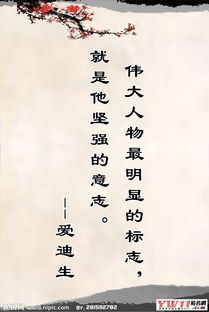 伟大人物最明显的标志，
就是他坚强的意志。
——爱迪生
YW11
www.nipic.com